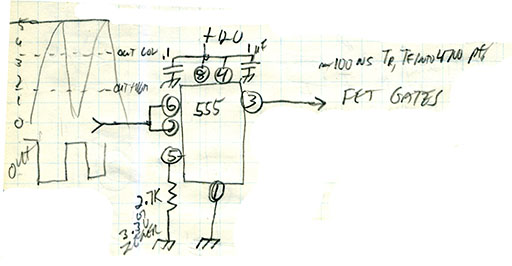 5
4
3
2
1
0
OUT LOW
OUT HIGH
OUT
+12V
.1
.1 µF
8
4
6
2
5
3
1
555
2.7K
3.
ZENER
~100 NS TR, TF INTO 4700 pf
FET GATES